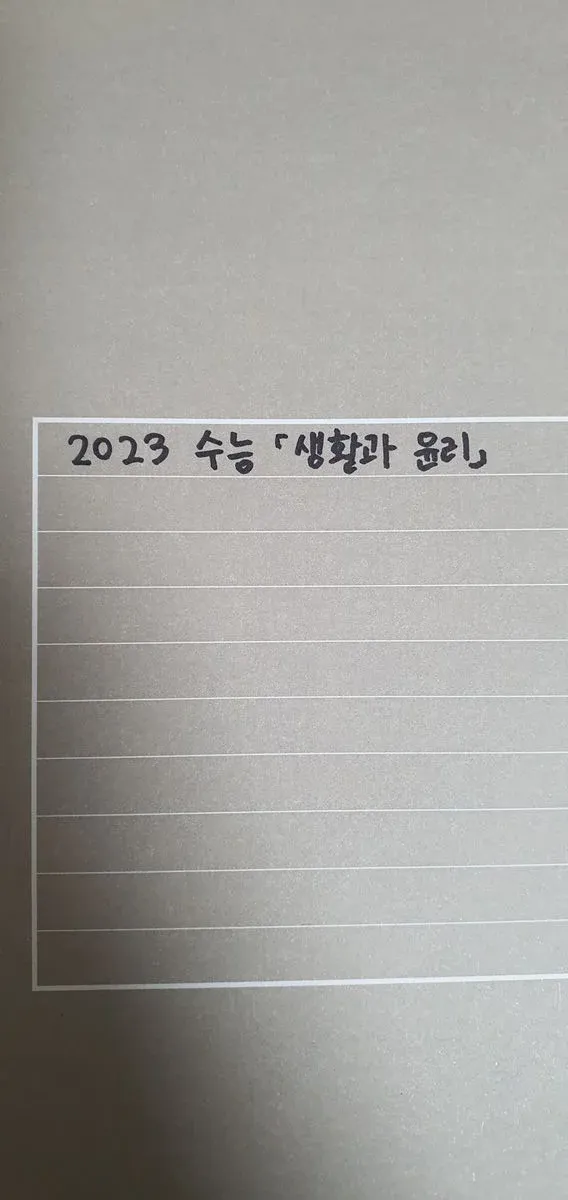 2023 수능 「생활과 윤리」